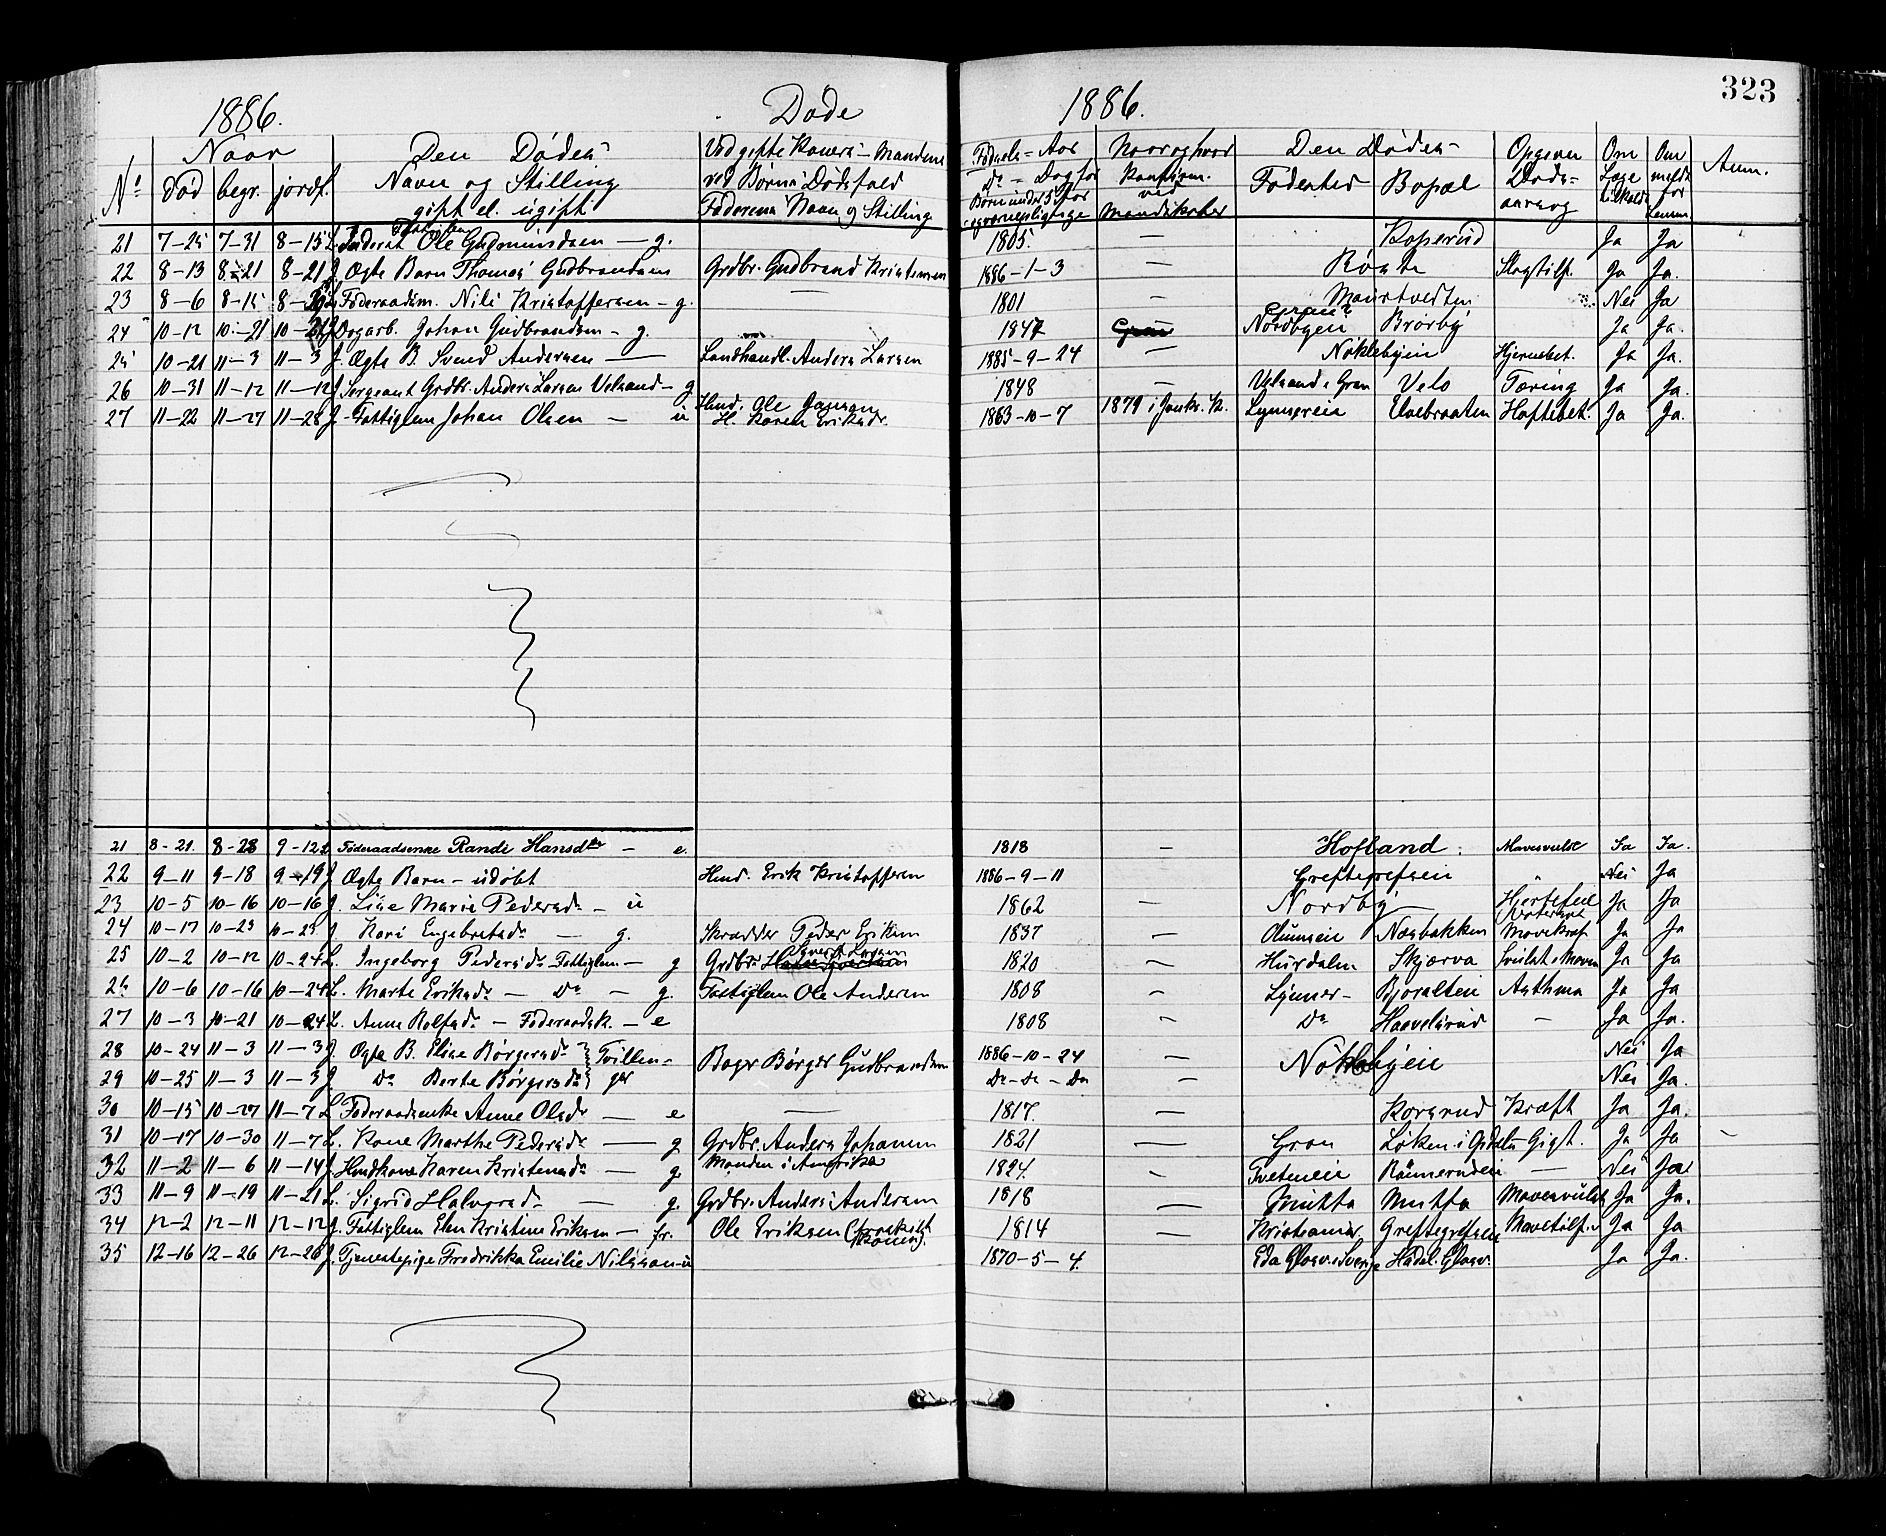 323
1886. Døde 1886.
No Naar Den Dødes Ved gifte Koners Mandens Fødsels-Aar Naar og hvor Den Dødes Opgiven Om Om Anm.
død begr. jordf. Navn og Stilling ved Børns Dødsfald Do - Dag for Konfirm. Fødested Bopæl Døds- Læge meldt
gift el. ugift Faderens Navn og Stilling Børn under 5 Aar ved Mandskaber aarsag tilkaldt for
21 7-25 7-31 8-15 L. Ole Gudmundsen - g. 1805. - Koperud Ja Ja
22 8-13 8-21 8-21 J. Ægte Barn Thomas Gudbrandsen Grdbr. Gudbrand Kristensen 1886-1-3 - Røste Slagtilf. Ja Ja.
23 8-6 8-15 Føderaadsm. Nils Kristoffersen - g. - 1801 - Nei Ja
24 10-12 10-21 10-21 J. Dagarb. Johan Gudbrandsen - g. 1847 Gran Nordbyen Brørby Ja Ja.
25 10-21 11-3 11-3 J. Ægte B. Svend Andersen - Landhandl. Anders Larsen 1885-9-24 - Noklebyen Hjernebet. Ja Ja.
26 10-31 11-12 11-12 J. Sergeant Grdbr. Anders Larsen Velsand - g 1848 - Velsand i Gran Velo Tæring Ja Ja.
27 11-22 11-27 11-28 J. Fattiglem Johan Olsen - u Hmd. Ole H. Karen Eriksdr. 1863-10-7 1879 i K. Lynnereie Ulvebraaten Hoftebet. Ja Ja.
21 8-21. 8-28 9-12 L Føderaadsenke Randi Hansdtr - e. 1818 - Hofland. Mavesvulst Ja Ja.
22 9-11 9-18 9-19 J Ægte Barn - udøbt Hmd. Erik Kristoffersen 1886-9-11 Greftegrefseie " Nei Ja
23 10-5 10-16 10-16 J. Lise Marie Pedersdr - u 1862 - Nordby - Hjertefeil Ja Ja
24 10-17 10-23 10-23 J Kari Engebretsdr - g. Skrædder Peder Eriksen 1837 - Næsbakken Mavekræf. Ja Ja
25 10-2 10-12 10-24 L. Ingeborg Pedersdr Fattiglem - g Grdbr. Syvert Larsen 1820 - Hurdalen Skjærva Svulst i Maven Ja Ja
26 10-6 10-16 10-24 L. Marte Eriksdr - Do - g. Fattiglem Ole Andersen 1808 - Lynner- Bjoralten Asthma Ja Ja
27 10-3 10-21 10-24 L. Anne Rolfsdr - Føderaadsk. - e 1808 - Do Haavelsrud - Ja Ja.
28 10-24 11-3 11-3 J. Ægte B. Elise Børgersdr Tvillin- Bager Børger Gudbrandsen 1886-10-24 - Noklebyeie Nei Ja
29 10-25 11-3 11-3 J Do Berte Børgersdr ger Do-Do-Do - Nei Ja.
30 10-15 10-27 11-7 L Føderaadsenke Anne Olsdr - e - 1817. - Korsrud Kræft Ja Ja.
31 10-17 10-30 11-7 L. Kone Marthe Pedersdr - g Grdbr. Anders Johansen 1821 - Gran Løken i Gigt. Ja Ja -
32 11-2 11-6 11-14 J. Hmdkone Karen Kristensdr - g Manden i Amerika 1824. - Tveteneie - Nei Ja
33 11-9 11-19 11-21 L. Sigrid Halvorsdr - g. Grdbr. Anders Andersen 1818 - Mutta Mutta Mavesvulst Ja Ja.
34 12-2 12-11 12-12 J. Fattiglem Elen Kristine Eriksen - fr. Ole Eriksen 1814 - Kristiania Greftegrefseie Ja Ja
35 12-16 12-26 12-26 J. Tjenestepige Fredrikka Emilie Nilsson - u 1870-5-4. Eda Glasv. i Sverige Hadel. Glasv. Ja Ja.